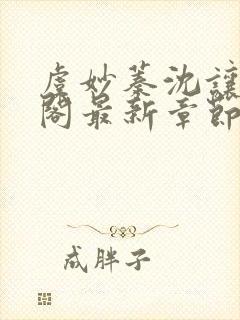 虞妙蓁沈讓
閣最新章節
成胖子